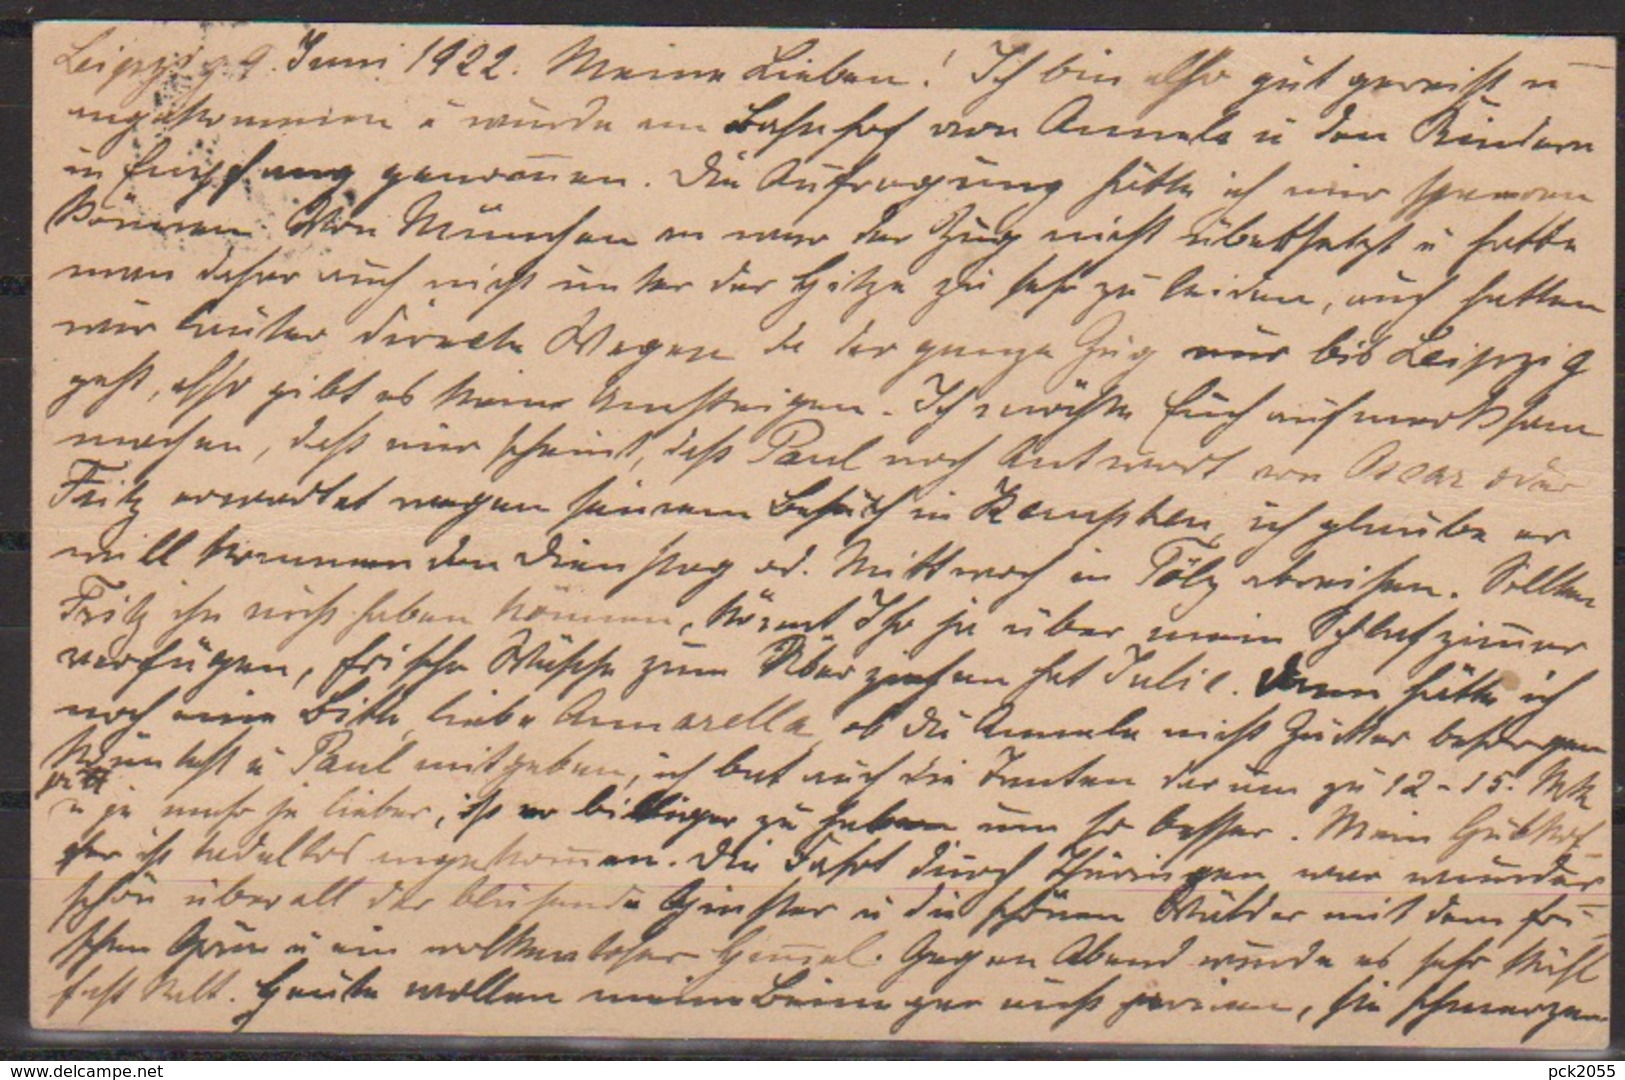 Leipzig 9. Juni 1922. Meine Lieben! Ich bin also gut gereist u
angekommen u wurde am Bahnhof von Annele u den Kindern
in Empfang genom̅en. Die Aufregung hätte ich mir sparen
können. Von München an war der Zug nicht übersetzt u hatte
man daher auch nicht unter der Hitze zu sehr zu leiden, auch hatten
wir lauter directe Wagen da der ganze Zug nur bis Leipzig
geht, also gibt es kein Umsteigen. Ich möchte Euch aufmerksam
machen, daß mir scheint, daß Paul noch Antwort von Oscar oder
Fritz erwartet wegen seinem Besuch in Kempten, ich glaube er
will kommenden Dienstag od. Mittwoch in Tölz abreisen. Sollten
Fritz ihn nicht haben können, könnt Ihr ja über mein Schlafzim̅er
verfügen, frische Wäsche zum Überziehen hat Julie. Dann hätte ich
noch eine Bitte, liebe Annarella, ob Du Annele nicht Zucker besorgen
könntest u Paul mitgeben, ich bat auch die Tanten darum zu 12-15. Mk
u je mehr je lieber, ist er billiger zu haben um so besser. Mein
ist tadellos angekom̅en. Die Fahrt durch Thüringen war wunder
schön überall der blühende Ginster u die schönen Wälder mit dem fri-
schen Grün u ein wolkenloser Him̅el. Gegen Abend wurde es sehr kühl
fast kalt. Heute wollen meine Beine gar nicht, sie schmerzen